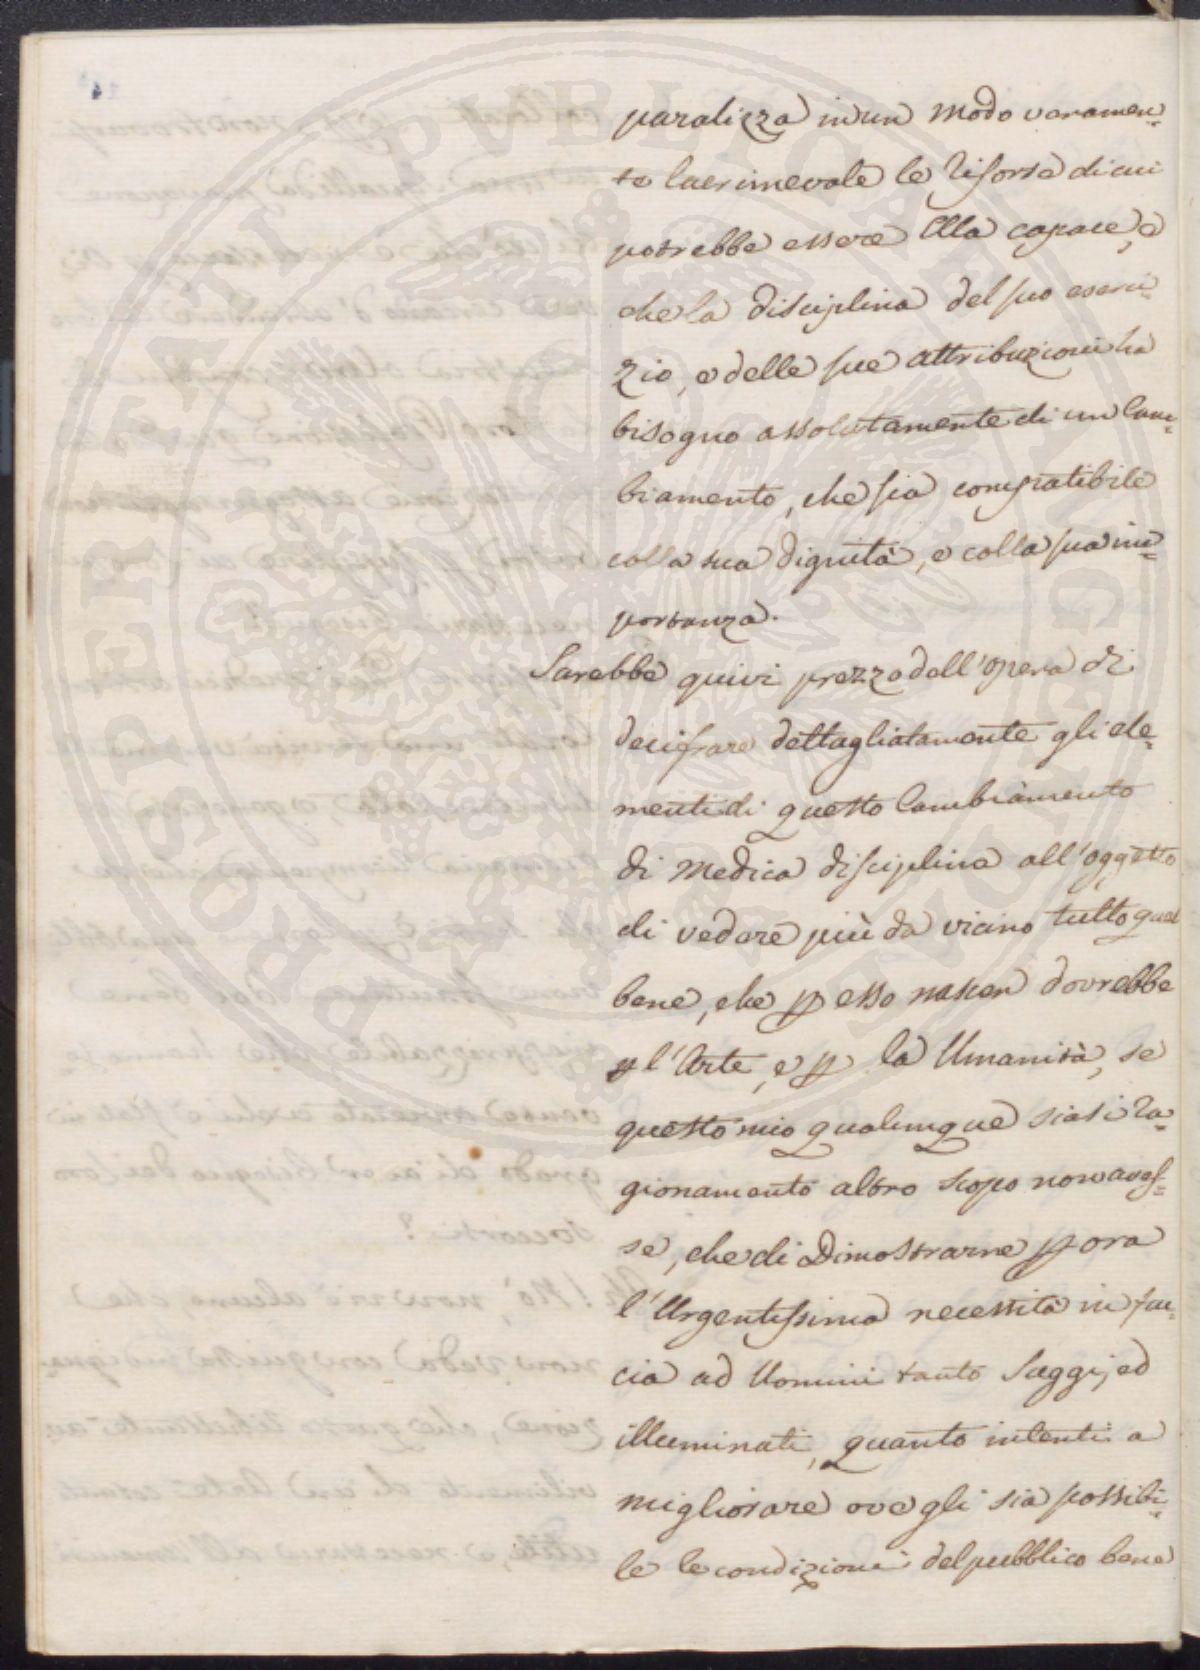 paralizza in un modo veramen=
te lacrimevole le risorse di cui
potrebbe essere Ella capace, e
che la disciplina del suo eserci=
zio, e delle sue attribuzioni ha
bisogno assolutamente di un Cam=
biamento, che sia compatibile
colla sua dignità, e colla sua im=
portanza.
Sarebbe quivi prezzo dell'opera di
decifrare dettagliatamente gli ele=
menti di questo Cambiamento
di Medica disciplina all'oggetto
di vedere più da vicino tutto quel
bene, che p esso nascer dovrebbe
p l'Arte, e p la Umanità, se
questo mio qualunque siasi ra=
gionamento altro scopo non aves=
se, che di Dimostrarne p ora
l'Urgentissima necessità in fac=
cia ad Uomini tanto Saggj, ed
illuminati, quanto intenti a
migliorare ove gli sia possibi=
le le condizioni del pubblico bene
PROSPERITATI PUBLICAE AUGENDAE